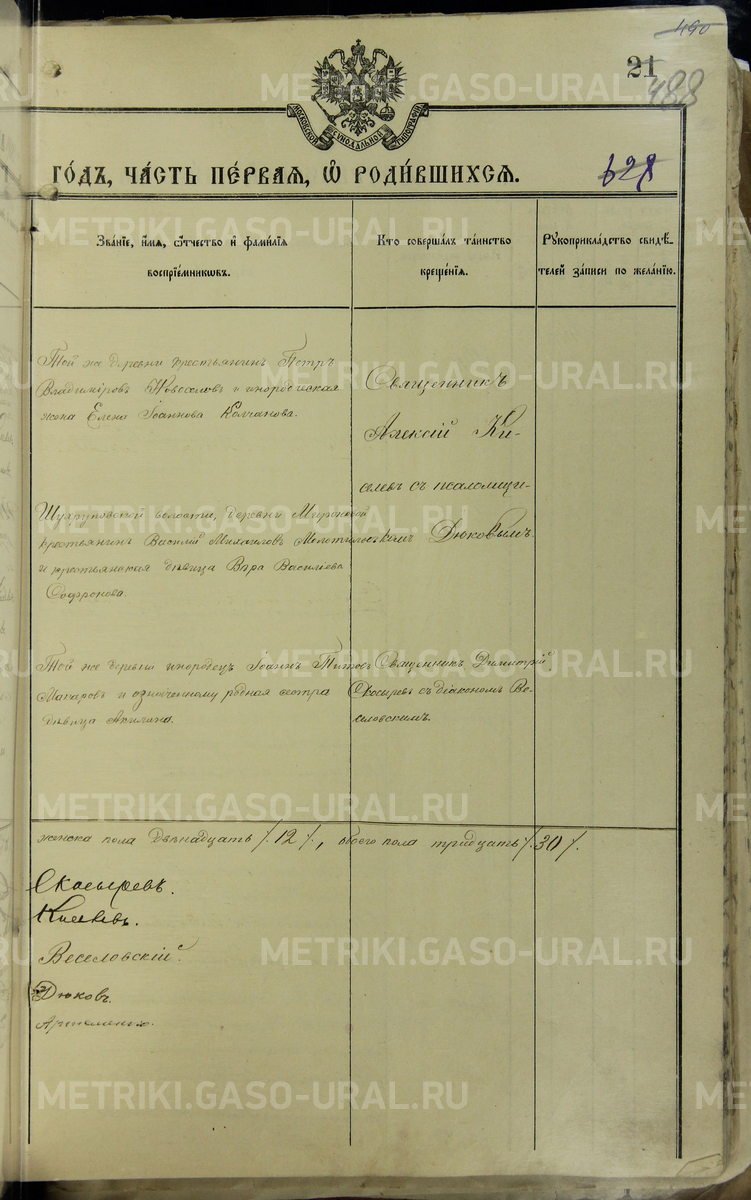 490
21
488
628
МОСКОВСКОЙ СУНОДАЛЬНОЙ ТИПОГРАФІИ
ГО́ДЪ, ЧА́СТЬ ПЕ́РВАЯ, Ѿ РОДИ́ВШИХСЯ.
Зва́ніе, и҆́мя, ѻ҆́тчество и҆ фами́лія
воспріе́мниковъ.
Кто соверша́лъ та́инство
креще́нія.
Рꙋкоприкла́дство свидѣ́-
телей за́писи по жела́нію.
Той же деревни крестьянинъ Петръ
Владиміровъ Новоселовъ и инородческая
жена Елена Іоаннова Колчанова.
Священникъ
Алексій Ки-
селевъ съ псаломщи-
комъ Дюковымъ.
волости, деревни
крестьянинъ Василій Михаиловъ
и крестьянская дѣвица Вѣра Василіева
Софронова.
Той же деревни инородецъ Іоаннъ Титовъ
Макаровъ и означенному родная сестра
дѣвица Акилина.
Священникъ Димитрій
Скосыревъ съ діакономъ Ве-
селовскимъ.
женска пола двѣнадцать /. 12 /., обоего пола тридцать /. 30 /.
Скосыревъ.
Киселевъ.
Веселовскій.
Дюковъ.
METRIKI.GASO-URAL.RU